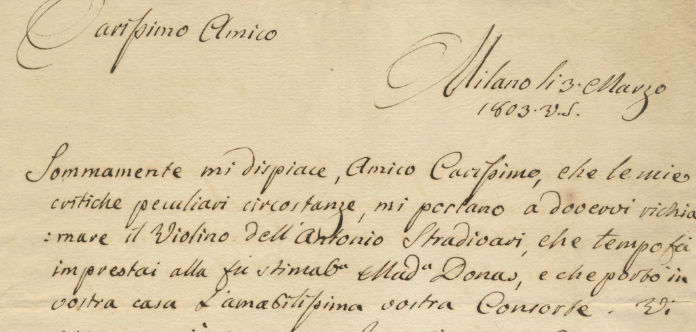 Carissimo Amico
Milano li 3. Marzo
1803. V.S.
Sommamente mi dispiace, Amico Carissimo, che le mie
critiche peculiari circostanze, mi portano a dovervi richia
:mare il Violino dell'Antonio Stradivari, che tempo fà
imprestai alla fu stimabᵃ Madᵃ Donas, e che portò in
vostra casa l'amabilissima vostra Consorte. Vi